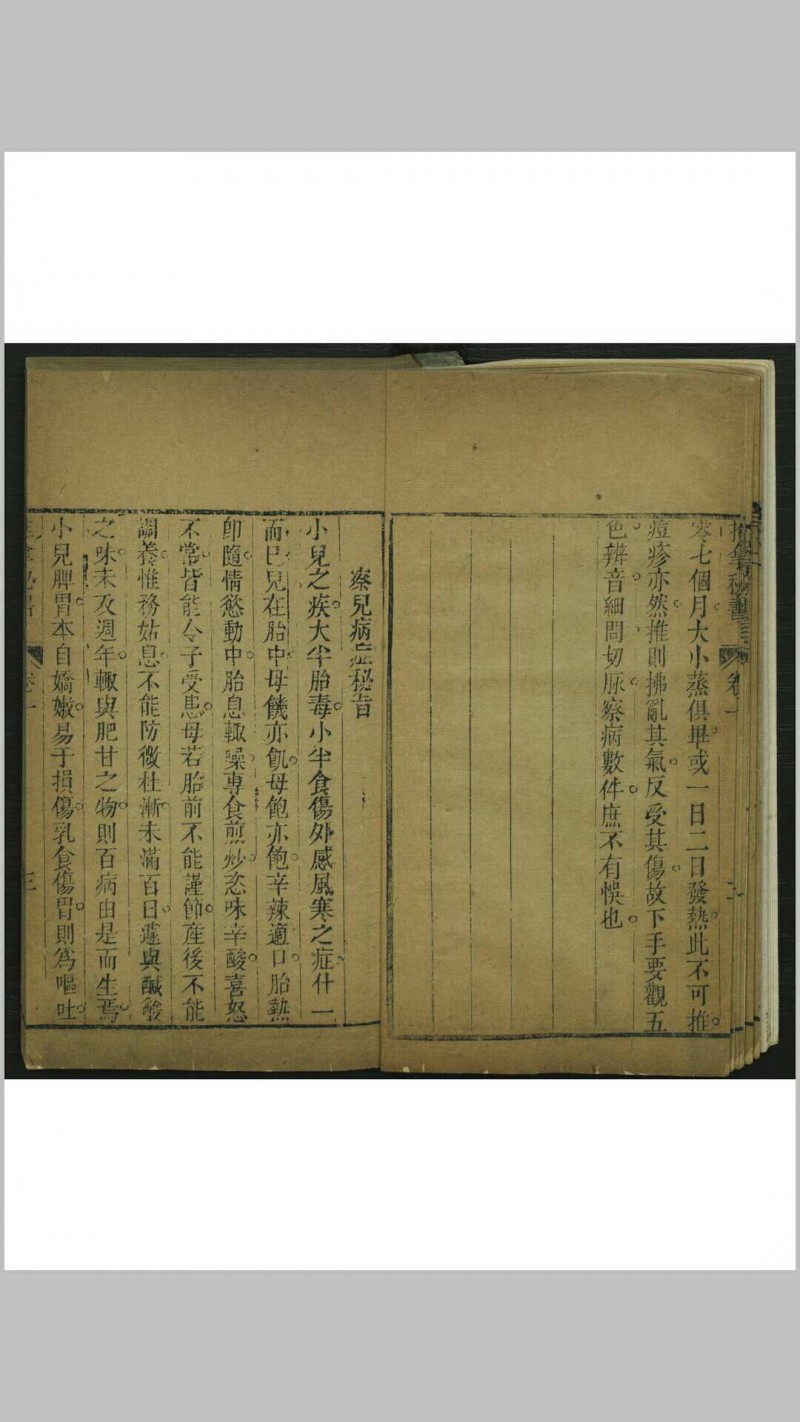 推拿秘書 卷一
零七個月大小蒸俱畢或一日二日發熱此不可推
痘疹亦然推則拂亂其氣反受其傷故下手要觀五
色辨音細問切脉察病數件庶不有悞也
察兒病症秘旨
小兒之疾大半胎毒小半食傷外感風寒之症什一
而巳兒在胎中母饑亦飢母飽亦飽辛辣適口胎熱
即隨情慾動中胎息輙噪專食煎炒恣味辛酸喜怒
不常皆能令子受患母若胎前不能謹節產後不能
調養惟務姑息不能防微杜漸未滿百日遽與鹹酸
之味未及週年輙與肥甘之物則百病由是而生焉
小兒脾胃本自嬌嫩易于損傷乳食傷胃則為嘔吐
卷一 三